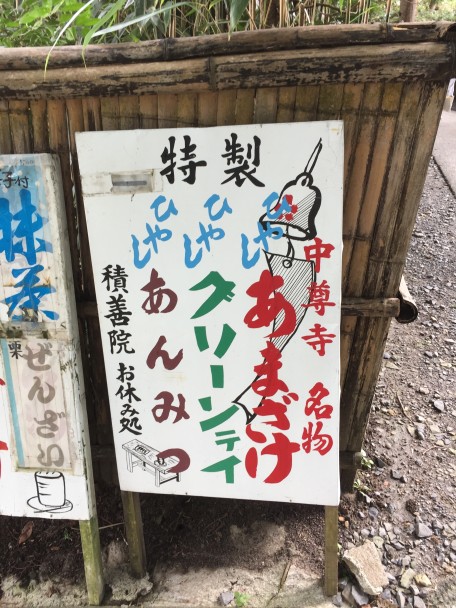 特製
中尊寺 名物
ひやし
あまざけ
ひやし
グリーンティ
ひやし
あんみつ
積善院 お休み処
抹茶
栗
ぜんざい